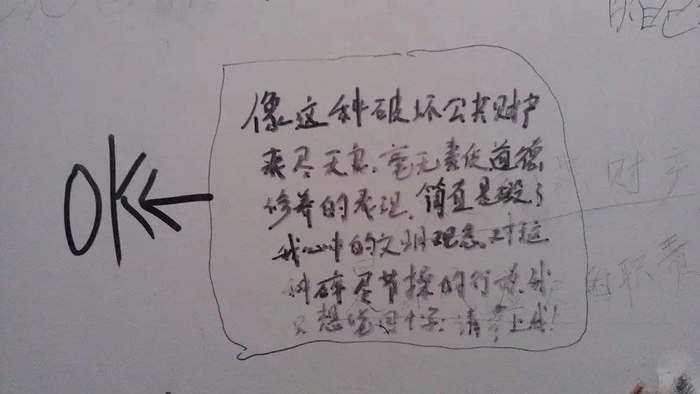 像这种破坏公共财产
丧尽天良,毫无素质道德
修养的表现,简直是毁了
我心中的文明观念,对这
种碎尽节操的行为,我
只想送四个字:请带上我!
OK
暗自己
财产
的职责